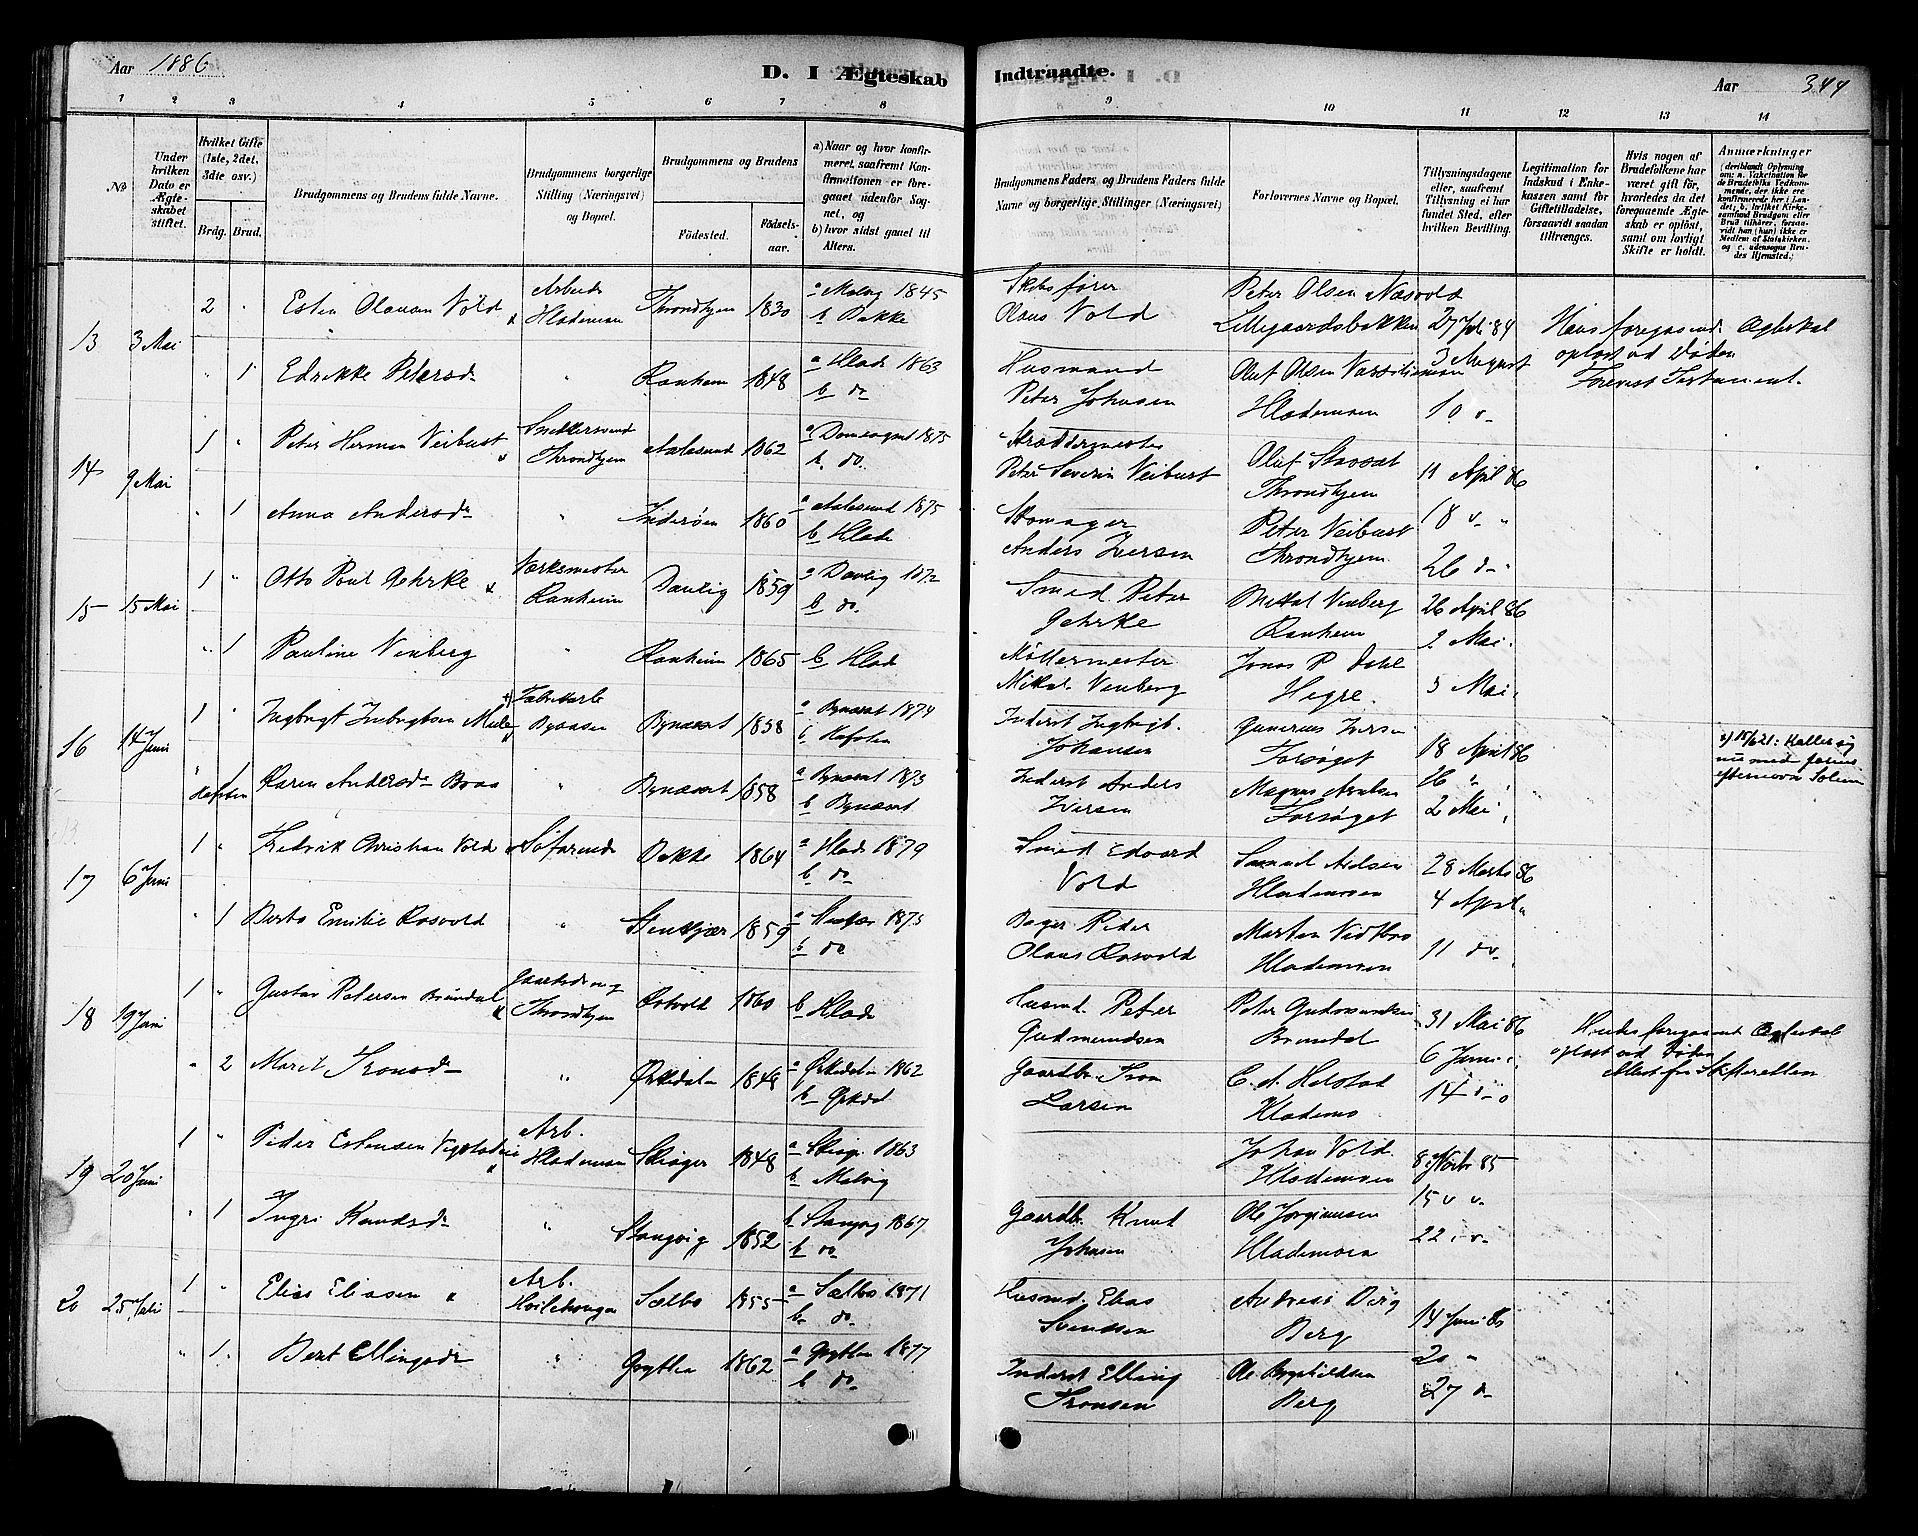 Aar 1886
D. I Ægteskab
Indtraadte.
Aar 344
1 2 3 4 5 6 7 8 9 10 11 12 13 14
No
Under hvilken Dato er Ægteskabet stiftet.
Hvilket Gifte (1ste, 2det, 3dte osv.)
Brdg. Brud.
Brudgommens og Brudens fulde Navne.
Brudgommens borgerlige Stilling (Næringsvei) og Bopæl.
Brudgommens og Brudens
Fødested.
Fødselsaar.
a) Naar og hvor konfirmeret, saafremt Konfirmationen er foregaaet udenfor Sognet, og
b) hvor sidst gaaet til Alters.
Brudgommens Faders og Brudens Faders fulde Navne og borgerlige Stillinger (Næringsvei)
Forlovernes Navne og Bopæl.
Tillysningsdagene eller, saafremt Tillysning ei har fundet Sted, efter hvilken Bevilling.
Legitimation for Indskud i Enkekassen samt for Giftetilladelse, forsaavidt saadan tiltrænges.
Hvis nogen af Brudefolkene har været gift før, hvorledes da det foregaaende Ægteskab er opløst, samt om lovligt Skifte er holdt.
Anmærkninger
13 3 Mai 2 " Esten Olausen Vold Arbeid. Hlademoen Throndhjem 1830 a Malvig 1845 b Bakke
Skibsfører Olaus Vold Peter Olsen Næsvold Lillegaardsbakken 27 Juli 84 Hans foregaaende Ægteskab opløst ved Døden
" 1 Edrikke Petersd. " Ranheim 1848 a Hlade 1863 b do
Husmand Peter Johnsen Oluf Olsen Hlademoen 3 August 10 " Forevist Testament.
14 9 Mai 1 " Peter Herman Veibust Snekkersvend Throndhjem Aalesund 1862 a Domsognet 1875 b do.
Skræddermester Peter Severin Veibust Oluf Stavset Throndhjem 11 April 86
" 1 Anna Andersd. " Inderøen 1860 a Aalesund 1875 b Hlade
Skomager Anders Iversen Peter Veibust Throndhjem 18 " " 26 d "
15 15 Mai 1 " Otto Paul Gehrke Værksmester Ranheim Danzig 1859 a Danzig 1872 b do.
Smed Peter Gehrke Mikal Venberg Ranheim 26 April 86 2 Mai
" 1 Pauline Venberg " Ranheim 1865 b Hlade
Møllermester Mikal Venberg Jonas P. Dahl Hegre. 5 Mai
16 14 Juni 1 " Ingbrigt Ingbrigtsen Fabrikarb. Byaasen Bynæsset 1858 a Bynæsset 1874 b Hafsten
Inderst Ingbrigt Johansen Gunerius Iversen Forsøget 18 April 86
Karen Andersd. Braa " Bynæsset 1858 a Bynæsset 1873 b Bynæsset
Inderst Anders Iversen Magnus Forsøget 26 " 2 Mai
x) 15/6 21: Kalder sig nu med familieefternavn Solem
17 6 Juni 1 " Fredrik Christian Vold Søfarende Bakke 1864 a Hlade 1879 b do
Smed Edvard Vold Samuel Hlademoen 28 Marts 86 4 April
" 1 Berta Emilie Rosvold " Stenkjær 1859 a 1875 b do
Bager Peder Olaus Rosvold Morten Hlademoen 11 do
18 19 Juni 1 " Gustav Petersen Brundal Gaardsdreng Throndhjem Rotvold 1860 b Hlade
Husmd. Peter Gudmundsen Peter Gudmundsen Brundal 31 Mai 86 6 Juni
" 2 Marit Tronsd. " Ørkedalen 1848 a Ørkedalen 1862 b Ørkedal
Gaardbr. Tron Larsen C. A. Helstad Hlademo 14
Hendes foregaaende Ægteskab opløst ved Døden Attest fra Skifteretten
19 20 Juni 1 " Peder Estensen Arb. Hlademoen Skoger 1848 a Skoger 1863 b Malvig
Johan Vold Hlademoen 8 Novbr 85
" 1 Ingri Knudsd. " Stangvig 1852 a Stangvig 1867 b do
Gaardbr. Knud Johnsen Ole Jørginusen Hlademoen 15 " 22 "
20 25 Juli 1 " Elias Eliasen Arb. Sælbo 1855 a Sælbo 1871 b do
Husmd. Elias Svendsen Andreas Berg Berg 14 Juni 86
" 1 Berit Ellingsdr " Grytten 1862 a Grytten 1877 b do
Inderst Elling Tronsen Ole Berg 20 " 27 d